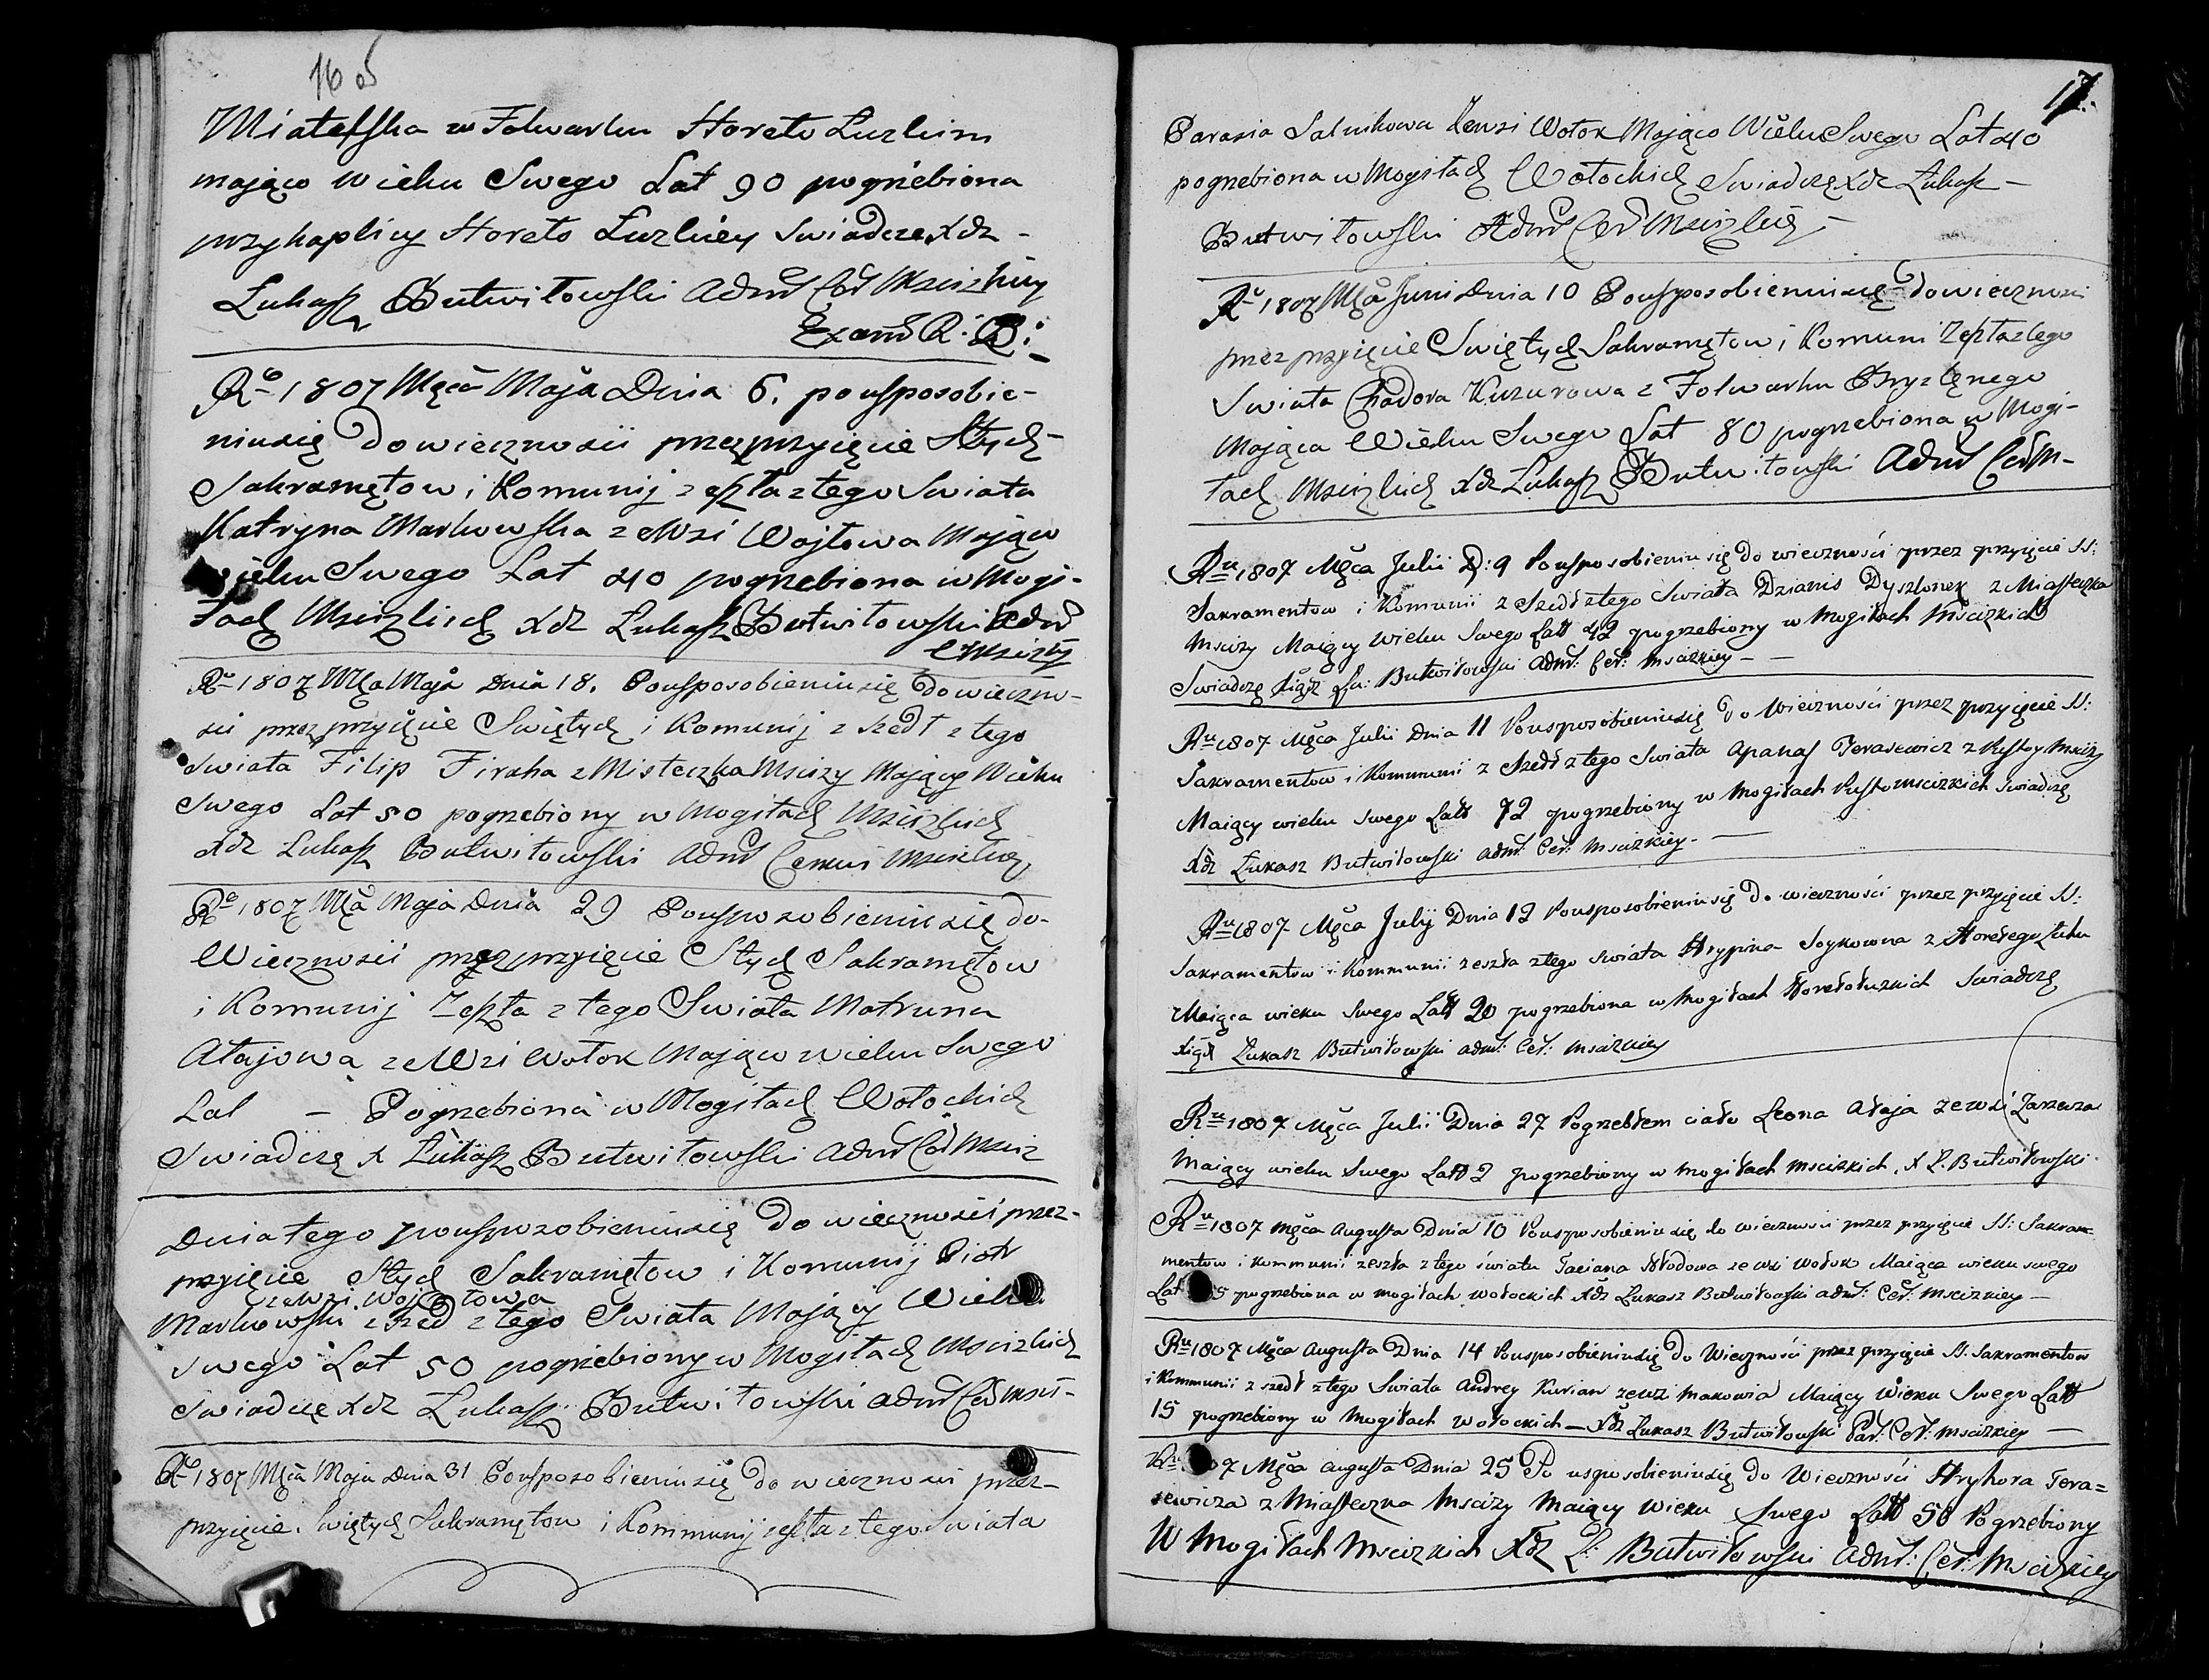 16 об
Miatelska w Folwarku Horeło Łuzkim
mająca wieku Swego Lat 90 pogrzebiona
przy kaplicy Horeło Łuzkiey Swiadczę Xdz -
Łukasz Butwiłowski Adm Cer Mscizkiey
Exam R: B:
Ru 1807 Męca Maja Dnia 6. po usposobie-
niu się do wieczności przez przyjęcie Stych
Sakramętow i Komunij zeszła z tego Swiata
Katryna Markowska ze Wsi Wojtowa Mająca
wieku Swego Lat 40 pogrzebiona w Mogi-
łach Mscizkich Xdz Łukasz Butwiłowski Adm
C Msciżkiey
Ru 1807 Męca Maja Dnia 18. Po usposobieniu się do wieczno-
sci przez przyięcie Swiętych i Komunij zszedł z tego
Swiata Filip Firaha z Misteczka Mscizy Mający Wieku
Swego Lat 50 pogrzebiony w Mogiłach Mscizkich
Xdz Łukasz Butwiłowski Adm Cerkwi Mscizkiey
Ru 1807 Męca Maja Dnia 29 Po usposobieniu się do-
Wieczności przez przyięcie Stych Sakramętow
i Komunij Zeszła z tego Swiata Matruna
Ałajowa ze Wsi Wołok Mająca wieku Swego
Lat - Pogrzebiona w Mogiłach Wołockich
Swiadczę X Łukasz Butwiłowski Adm Cer Msciz
Dnia tego po usposobieniu się do wieczności przez-
przyięcie Stych Sakramętow i Komunij Piotr
ze Wsi Wojtowa
Markowski zszed z tego Swiata Mający Wieku
Swego Lat 50 pogrzebiony w Mogiłach Mscizkich
Swiadczę Xdz Łukasz Butwiłowski Adm Cer Msci-
Ru 1807 Męca Maja Dnia 31 Po usposobieniu się do wieczności przez-
przyięcie Swiętych Sakramętow i Kommunij zeszła z tego Swiata
17.
Parasia Salnikowa ze wsi Wołok Mająca Wieku Swego Lat 40
pogrzebiona w Mogiłach Wołockich Swiadczę Xdz Łukasz -
Butwiłowski Adm Cer Mscizkiey -
Ru 1807 Męca Juni Dnia 10 Po usposobieniu się do wieczności
przez przyięcie Swiętych Sakramętow i Komuni Zeszła z tego
Swiata Chadora Kuzurowa z Folwarku
Mająca Wieku Swego Lat 80 pogrzebiona w Mogi-
łach Mscizkich Xdz Łukasz Butwiłowski Adm Cer M-
Ru 1807 Męca Julii D: 9 Po usposobieniu się do wieczności przez przyięcie SS:
Sakramentow i Komunii z Szedł z tego Swiata Dzianis Dyszlonek z Miasteczka
Mscizy Maiący wieku Swego Latt 42 pogrzebiony w Mogiłach Mscizkich
Swiadczę Xiądz Łu: Butwiłowski Adm: Cer: Mscizkiey - -
Ru 1807 Męca Julii Dnia 11 Po usposobieniu się do Wieczności przez przyięcie SS:
Sakramentow i Kommunii z Szedł z tego Swiata Apanas Jerasewicz z Pustoy Mscizy
Maiący wieku Swego Latt 72 pogrzebiony w Mogiłach Pustomscizkich Swiadczę
Xdz Łukasz Butwiłowski Adm: Cer: Mscizkiey. -
Ru 1807 Męca Julij Dnia 12 Po usposobieniu się do wieczności przez przyięcie SS:
Sakramentow i Kommunii zeszła z tego Swiata Hrypina Soykowna z Horełego Łuhu
Maiąca wieku Swego Latt 20 pogrzebiona w Mogiłach Horełołuzkich Swiadczę
Xiądz Łukasz Butwiłowski Adm: Cer: Mscizkiey
Ru 1807 Męca Julii Dnia 27 Pogrzebłem ciało Leona Ałaja ze wsi Zarzecza
Maiący wieku Swego Latt 2 pogrzebiony w Mogiłach Mscizkich. X Ł. Butwiłowski
Ru 1807 Męca Augusta Dnia 10 Po usposobieniu się do wieczności przez przyięcie SS: Sakra-
mentow i Kommunii zeszła z tego świata Taciana Hłodowa ze wsi Wołok Maiąca wieku swego
Lat 5 pogrzebiona w mogiłach wołockich Xdz Łukasz Butwiłowski Adm: Cer: Mscizkiey -
Ru 1807 Męca Augusta Dnia 14 Po usposobieniu się do Wieczności przez przyięcie SS. Sakramentow
i Kommunii z szedł z tego Swiata Andrey Kurian ze wsi Makowia Maiący Wieku Swego Latt
15 pogrzebiony w Mogiłach Wołockich - Xdz Łukasz Butwiłowski Par: Cer: Mscizkiey -
Ru 07 Męca Augusta Dnia 25 Po usposobieniu się do Wieczności Hryhora Tera=
sewicza z Miasteczka Mscizy Maiący Wieku Swego Latt 50 Pogrzebiony
W Mogiłach Mscizkich Xdz Ł: Butwiłowski Adm: Cer: Mscizkiey